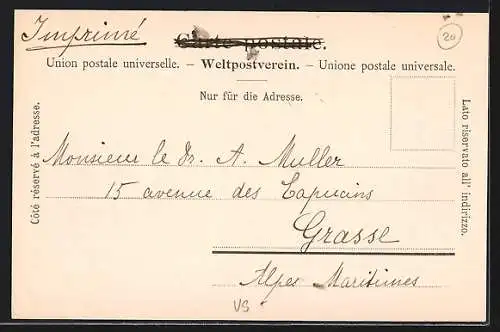 Imprimé
20
Carte postale.
Union postale universelle. – Weltpostverein. – Unione postale universale.
Nur für die Adresse.
Côté réservé à l'adresse.
Lato riservato all' indirizzo.
Monsieur le Dr. A. Muller
15 avenue des Capucins
Grasse
Alpes Maritimes
VS